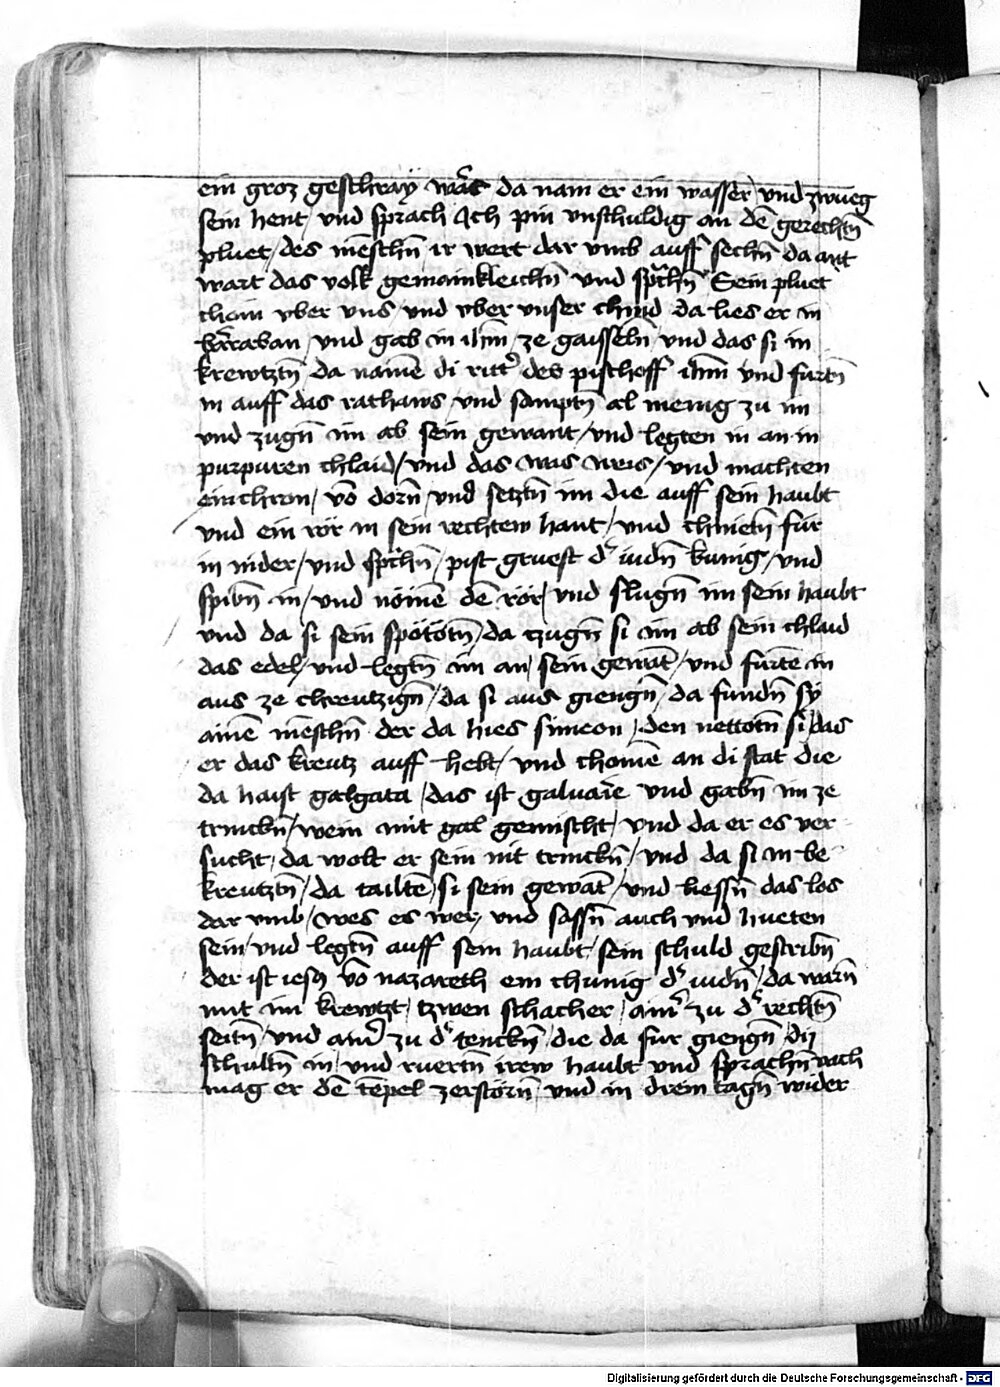 ein groz geschray wart da nam er ein wasser und zwueg
sein hent / und sprach Ich pin unschuldig an dē gerechtn̄
pluet / des mēschn̄ ir wert dar umb auff sechn̄ da ant
wart das volk gemainkleichn̄ und sprchn̄ Sein pluet
chom vber uns / und vber unser chind da lies er in
barraban / und gab in ihm̄ / ze gaisseln̄ / und das si in
krewtztn̄ / da namē di rittr̄ des pischoff ihm̄ und furtn̄
in auff das rathaws / und samptn̄ al menig zu im
und zugn̄ im ab sein gewant / und legten in an in
purpuren chlaid / und das was weis / und machten
ein chron / vō dorn̄ / und setztn̄ im die auff sein haubt
und ein rör in sein rechtew hant / und chnietn̄ für
in nider / und sprchn̄ / pist gruest d' iudn̄ kunig / und
spibn̄ in / und nömē dē rör / und slugn̄ im sein haubt
und da si sein spötotn̄ / da tzugn̄ si im ab sein chlaid
das edel / und legtn̄ im an / sein gewāt / und furtē in
aus ze chreutzign̄ / da si aus giengn̄ / da fundn̄ sy
ainē mēschn̄ der da hies simeon / den nettotn̄ si / das
er das kreutz auff hebt / und chomē an di stat die
da haist golgata / das ist galuarie und gabn̄ im ze
trinckn̄ / wein mit gal gemischt / und da er es ver
sucht / da wolt er sein nit trinckn̄ / und da si in be
kreutztn̄ / da tailtē si sein gewāt / und liessn̄ das los
dar umb / wes es wer / und sassn̄ auch und hueten
sein / und legtn̄ auff sein haubt / sein schuld gescribn̄
der ist iesus vō nazareth ein chunig d' iudn̄ / da warn̄
mit im krewtzt / tzwen schacher / ainr̄ zu d' rechtn̄
seitn̄ / und ainr̄ zu d' tenckn̄ / die da fur giengn̄ / dy
schultn̄ in / und ruertn̄ irew haubt und sprachn̄ wach
mag er dē tēpel zerstörn̄ / und in drein tagn̄ wider
Digitalisierung gefördert durch die Deutsche Forschungsgemeinschaft - DFG